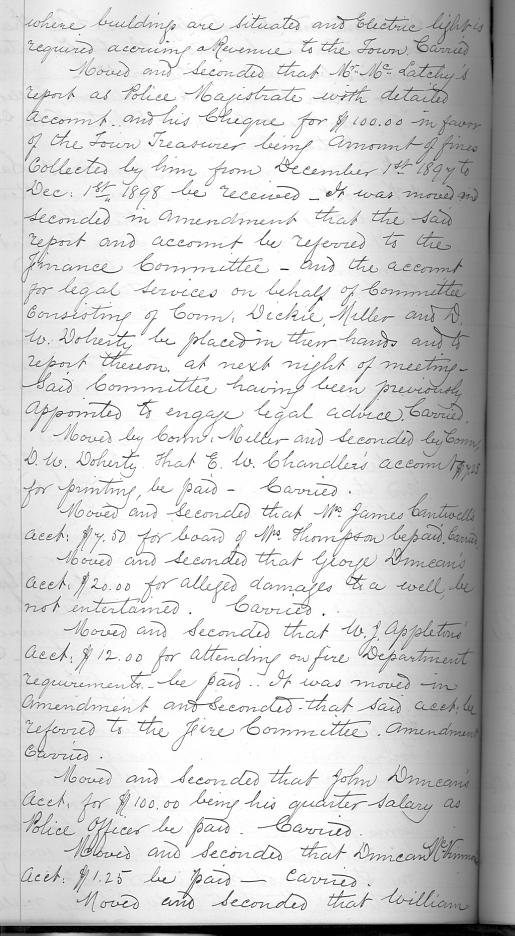 where buildings are situated and Electric light is
required accruing a Revenue to the Town. Carried
Moved and seconded that Mr. McLatchy's
report as Police Majistrate with detailed
Account. and his Cheque for $100.00 in favor
of the Town Treasurer being amount of fines
Collected by him from December 1st 1897 to
Dec: 1st 1898 be received – It was moved and
seconded in amendment that the said
report and account be referred to the
Finance Committee – and the account
for legal services on behalf of Committee
Consisting of Coun: Dickie, Miller and D.
W. Doherty be placed in their hands and to
report thereon at next night of meeting –
Said Committee having been previously
appointed to engage legal advice. Carried.
Moved by Coun: Miller and seconded by Coun,
D. W. Doherty That E. W. Chandler's account
for printing, be paid – Carried.
Moved and Seconded that Mrs. James Cantwell's
acct: $7.50 for board of Mrs. Thompson be paid. Carried
Moved and seconded that George Duncan's
acct: $20.00 for alleged damages to a well, be
not entertained. Carried.
Moved and Seconded that W. J. Appleton's
acct: $12.00 for attending on fire Department
requirements – be paid .. It was moved in
Amendment and Seconded that said acct: be
referred to the Fire Committee. Amendment
Carried.
Moved and Seconded that John Duncan's
Acct, for $100.00 being his quarter salary as
Police Officer be paid. Carried.
Moved and seconded that Duncan McKinnon
acct: $1.25 be paid – carried.
Moved and seconded that William